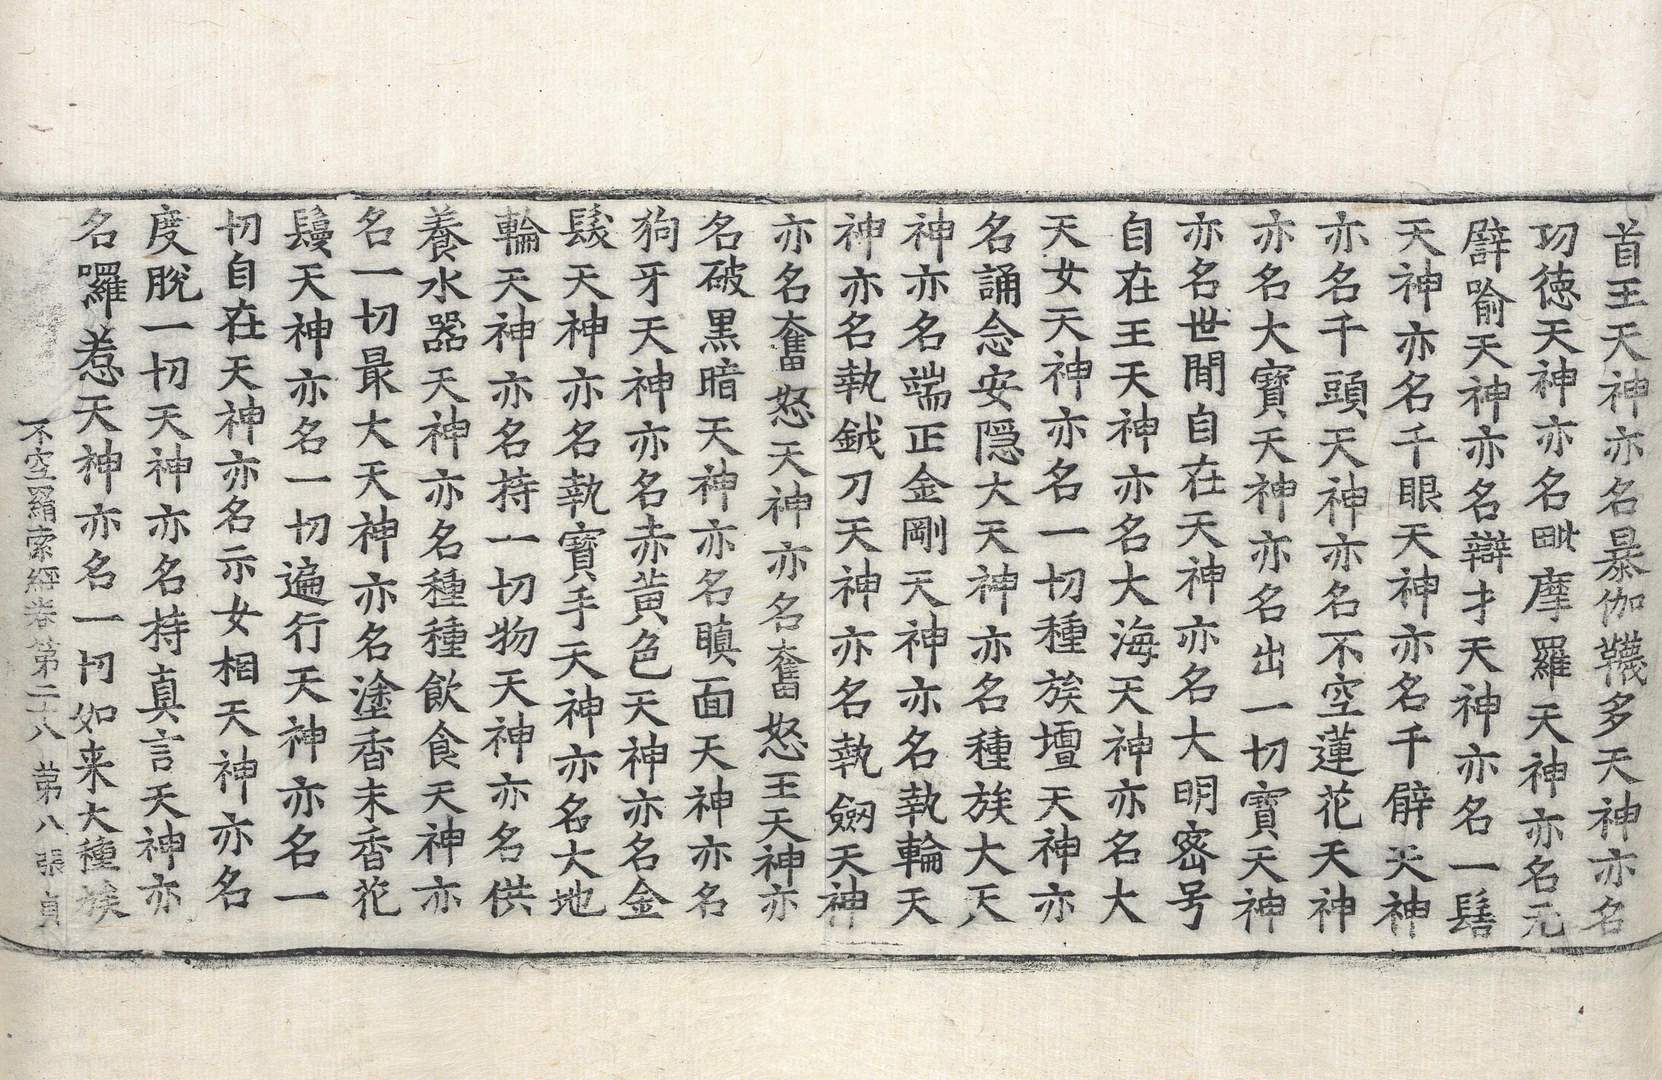 首王天神亦名暴伽韈多天神亦名
功徳天神亦名毗摩羅天神亦名无
譬喻天神亦名辯才天神亦名一髻
天神亦名千眼天神亦名千臂天神
亦名千頭天神亦名不空蓮花天神
亦名大寳天神亦名出一切寳天神
亦名世間自在天神亦名大明宻号
自在王天神亦名大海天神亦名大
天女天神亦名一切種族壇天神亦
名誦念安隠大天神亦名種族大天
神亦名端正金剛天神亦名執輪天
神亦名執鉞刀天神亦名執劒天神
亦名奮怒天神亦名奮怒王天神亦
名破黒暗天神亦名瞋面天神亦名
狗牙天神亦名赤黄色天神亦名金
髮天神亦名執寳手天神亦名大地
輪天神亦名持一切物天神亦名供
養水器天神亦名種種飲食天神亦
名一切最大天神亦名塗香末香花
鬘天神亦名一切遍行天神亦名一
切自在天神亦名示女相天神亦名
度脫一切天神亦名持真言天神亦
名囉惹天神亦名一切如来大種族
不空羂索經卷第二十八 第八張 貞